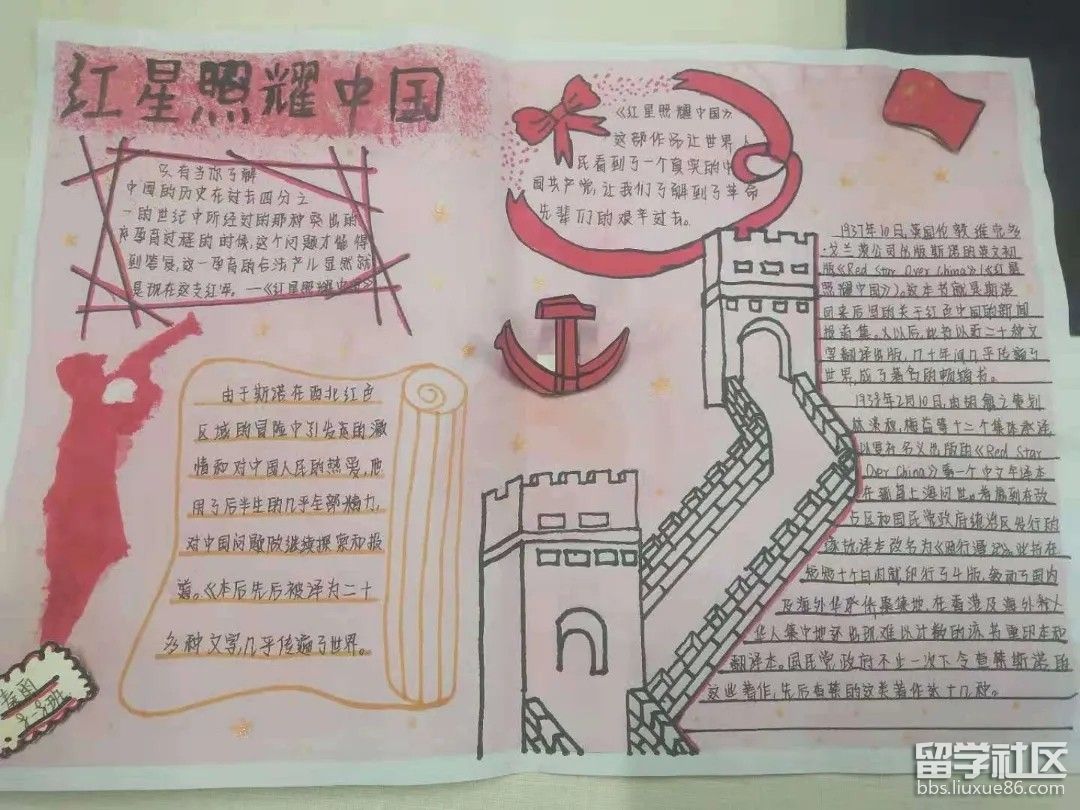 红星照耀中国
只有当你了解
中国的历史在过去四分之
一的世纪中所经过的那种突出的
孕育过程的时候,这个问题才能得
到答复,这一孕育的合法产儿显然就
是现在这支红军。—《红星照耀中国》
由于斯诺在西北红色
区域的冒险中引发起的激
情和对中国人民的热爱,
用了后半生的几乎全部精力,
对中国问题做继续探索和报
道。《本后先后被译为二十
多种文字,几乎传遍了世界。
《红星照耀中国》
这部作品让世界人
民看到了一个真实的中
国共产党,让我们了解到了革命
先辈们的艰辛过去。
1937年10月,英国伦敦维克多
·戈兰茨公司出版斯诺的英文初
版《Red Star Over China》(《红星
照耀中国》)。这本书就是斯诺
回来后写的关于红色中国的新闻
报道集。从以后,此书以近二十种文
字翻译出版,几十年间几乎传遍了
世界,成了著名的畅销书。
1938年2月10日,由胡愈之策划
林淡秋,梅益等十二个集体承译
以复社名义出版的《Red Star
Over China》第一个中文全译本
在 上海问世。考虑到在敌
占区和国民党政府统治区发行的
译本改名为《西行漫记》。此书在
短短十个月内就印行了4版,轰动了国内
及海外华侨集聚地 在香港及海外
华人集中地还出现难以计数的该书重印本和
翻译本。国民党政府不止一次下令查禁斯诺的
这些著作,先后查禁的这类著作 十几种。
留学社区
bbs.liuxue86.com